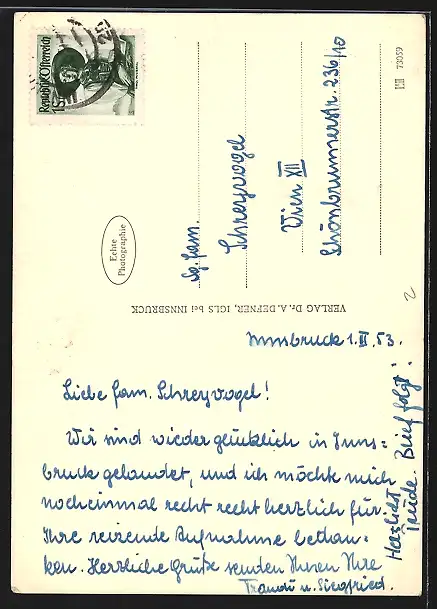 Republik Österreich
1S
Echte
Photographie
VERLAG Dr. A. DEFNER, IGLS bei INNSBRUCK
Sg. Fam.
Schreyvogel
Wien XII
Schönbrunnerstr. 236/10
73059
2
Innsbruck 1.II.53.
Liebe Fam. Schreyvogel!
Wir sind wieder glücklich in Inns=
bruck gelandet, und ich möchte mich
nocheinmal recht recht herzlich für
Ihre reizende Aufnahme bedan-
ken. Herzliche Grüße senden Ihnen Ihre
Traudi u. Siegfried.
Brief folgt!
Herzlichst
Trude.